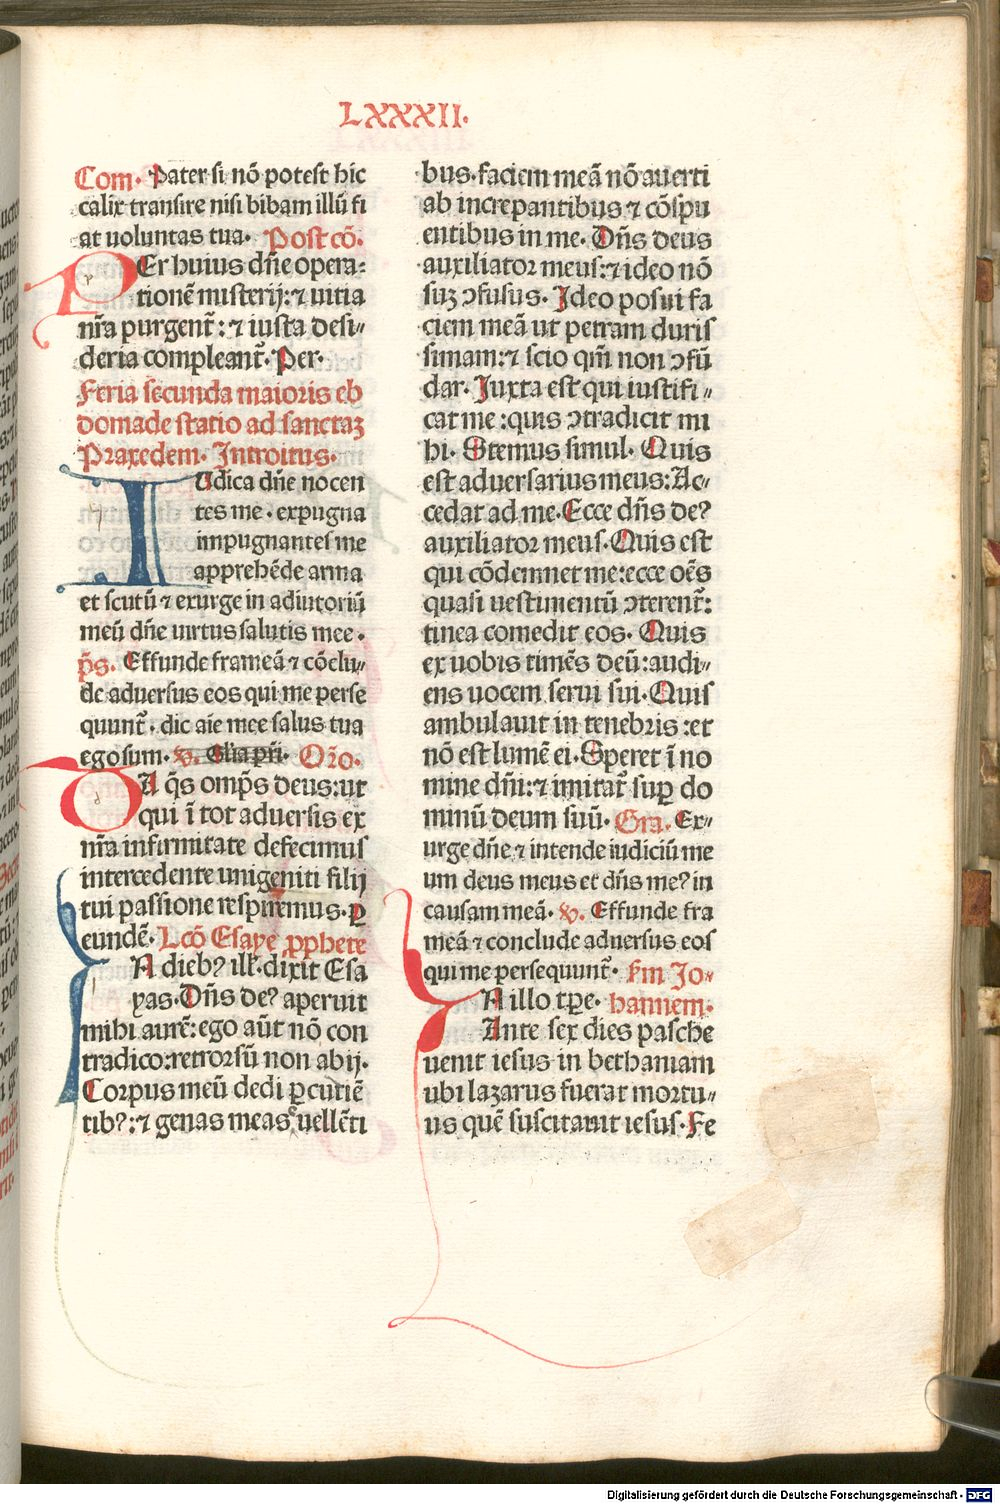 LXXXII.
Com. Pater si nõ potest hic
calix transire nisi bibam illũ fi
at uoluntas tua. Post cõ.
PEr huius dñe opera:
tionẽ misterij: ⁊ uitia
nr̃a purgent̃: ⁊ iusta desi⸗
deria compleant̃. Per.
Feria secunda maioris eb
domade statio ad sanctaꝫ
Praxedem. Introitus.
IUdica dñe nocen
tes me. expugna
impugnantes me
apprehẽde arma
et scutũ ⁊ exurge in adiutoriũ
meũ dñe uirtus salutis mee.
p̃s. Effunde frameã ⁊ cõclu⸗
de aduersus eos qui me perse
quunt̃. dic aĩe mee salus tua
ego sum. ꝟ. Gl̃ia pr̃i. Or̃o.
DA q̃s omp̃s deus: ut
qui ĩ tot aduersis ex
nr̃a infirmitate defecimus
intercedente unigeniti filij
tui passione respiremus. ꝑ
eundẽ. Lcõ Esaye ꝓphete
IN dieb⁹ ill̃. dixit Esa
yas. Dñs de⁹ aperuit
mihi aurẽ: ego aũt nõ con
tradico: retrorsũ non abij.
Corpus meũ dedi ꝑcutiẽ
tib⁹: ⁊ genas meas uellẽti
bus. faciem meã nõ auerti
ab increpantibus ⁊ cõspu
entibus in me. Dñs deus
auxiliator meus: ⁊ ideo nõ
suꝫ ↄfusus. Ideo posui fa
ciem meã ut petram duris
simam: ⁊ scio qm̃ non ↄfũ
dar. Juxta est qui iustifi⸗
cat me: quis ↄtradicit mi
hi. Stemus simul. Quis
est aduersarius meus: Ac⸗
cedat ad me. Ecce dñs de⁹
auxiliator meus. Quis est
qui cõdemnet me: ecce oẽs
quasi uestimentũ ↄterent̃:
tinea comedit eos. Quis
ex uobis timẽs deũ: audi⸗
ens uocem serui sui. Quis
ambulauit in tenebris: et
nõ est lumẽ ei. Speret ĩ no
mine dñi: ⁊ imitat̃ suꝑ do
minũ deum suũ. Gra. Ex⸗
urge dñe ⁊ intende iudiciũ me
um deus meus et dñs me⁹ in
causam meã. ꝟ. Effunde fra
meã ⁊ conclude aduersus eos
qui me persequunt̃. Sm̃ Jo⸗
IN illo tꝑe. hannem.
Ante sex dies pasche
uenit iesus in bethaniam
ubi lazarus fuerat mortu⸗
us quẽ suscitauit iesus. Fe
Digitalisierung gefördert durch die Deutsche Forschungsgemeinschaft - DFG